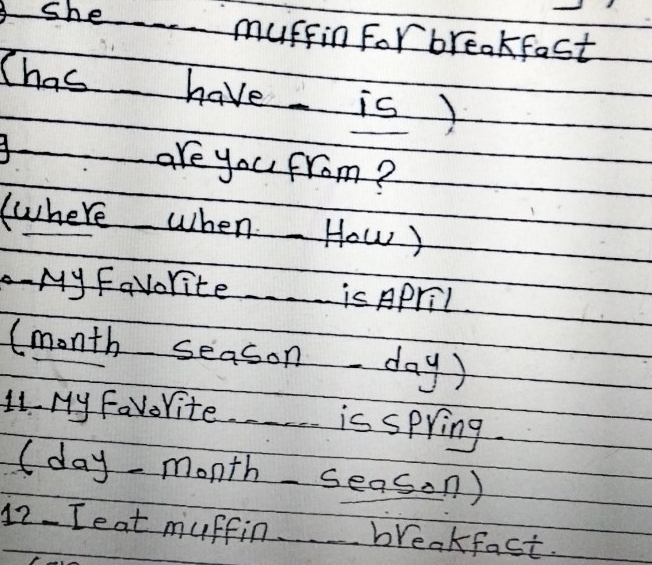 She ...... muffin for breakfast
(has - have - is )
9 ...... are you from?
(where - when - How)
- My Favorite ...... is APril
(month - season - day)
11- My Favorite ...... is spring.
( day - month - season)
12- I eat muffin ...... breakfast.